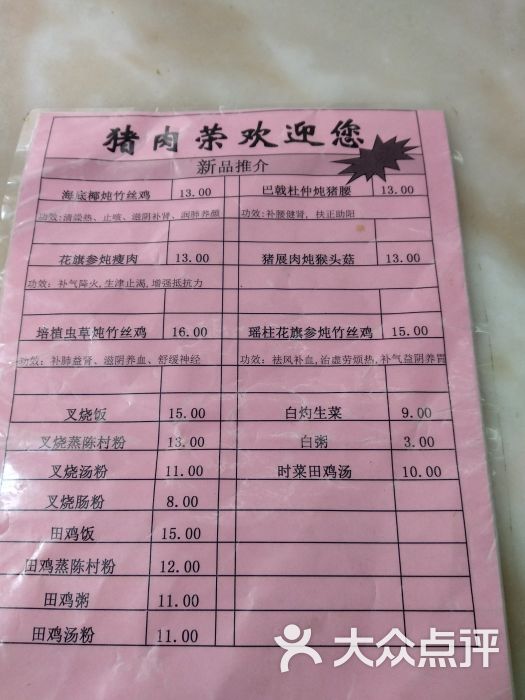 猪肉荣欢迎您
新品推介
海底椰炖竹丝鸡 13.00 巴戟杜仲炖猪腰 13.00
功效:清燥热、止咳、滋阴补肾、润肺养颜 功效:补腰健肾, 扶正助阳
花旗参炖瘦肉 13.00 猪展肉炖猴头菇 13.00
功效:补气降火,生津止渴,增强抵抗力
培植虫草炖竹丝鸡 16.00 瑶柱花旗参炖竹丝鸡 15.00
功效:补肺益肾、滋阴养血、舒缓神经 功效:祛风补血,治虚劳烦热,补气益阴养胃
叉烧饭 15.00 白灼生菜 9.00
叉烧蒸陈村粉 13.00 白粥 3.00
叉烧汤粉 11.00 时菜田鸡汤 10.00
叉烧肠粉 8.00
田鸡饭 15.00
田鸡蒸陈村粉 12.00
田鸡粥 11.00
田鸡汤粉 11.00
大众点评